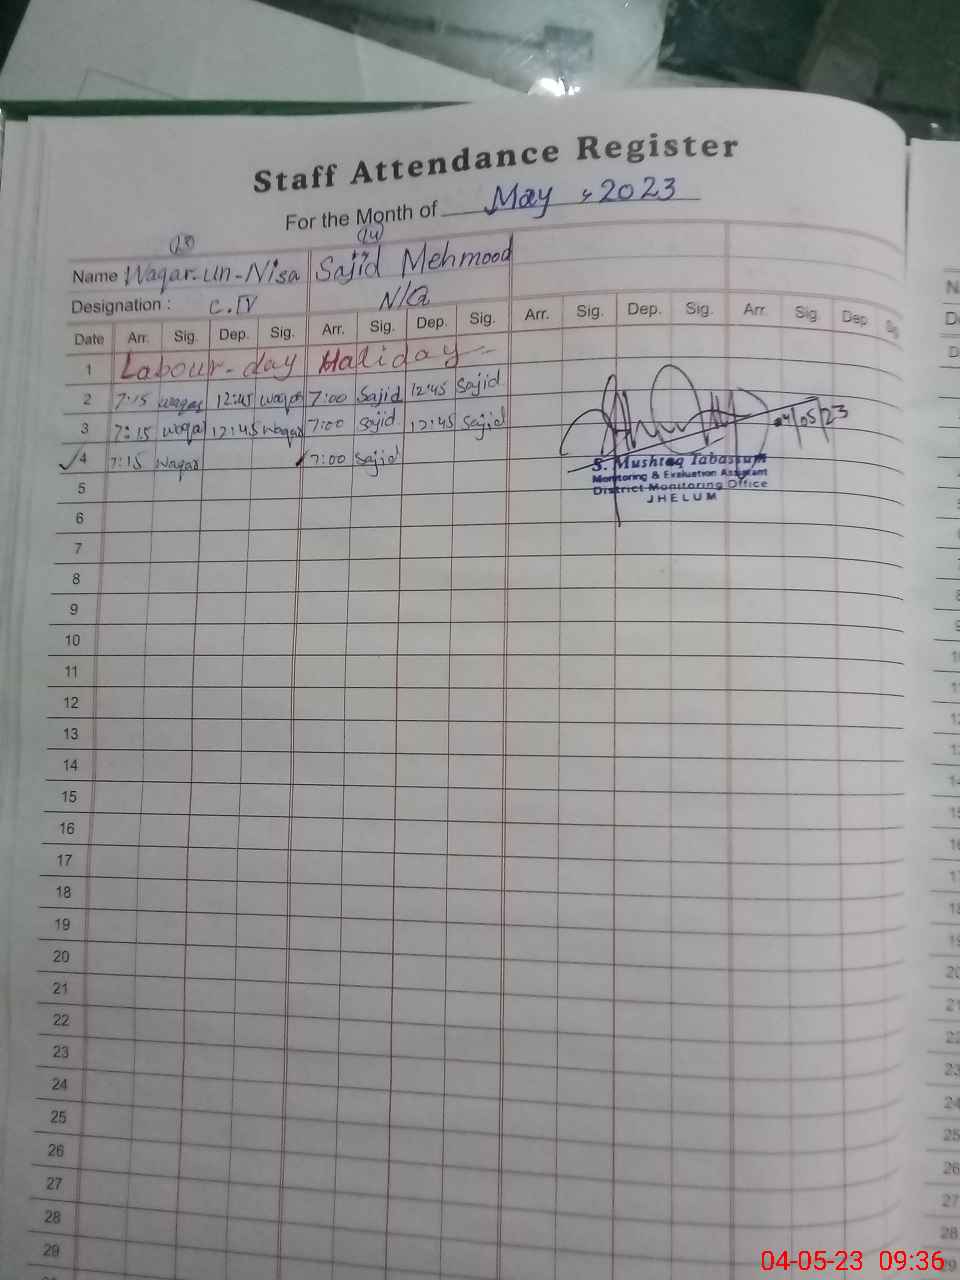 Staff Attendance Register
For the Month of May, 2023
Name Waqar-un-Nisa Sajid Mehmood
Designation : C.IV N/Q
Date Arr. Sig. Dep. Sig. Arr. Sig. Dep. Sig. Arr. Sig. Dep. Sig. Arr. Sig Dep Sig
1 Labour-day Haliday
2 7:15 waqar 12:45 waqar 7:00 Sajid 12:45 Sajid
3 7:15 waqar 12:45 waqar 7:00 Sajid 12:45 Sajid
4 7:15 waqar 7:00 Sajid
04/05/23
S. Mushtaq Tabassum
Monitoring & Evaluation Assistant
District Monitoring Office
JHELUM
5
6
7
8
9
10
11
12
13
14
15
16
17
18
19
20
21
22
23
24
25
26
27
28
29
04-05-23 09:36